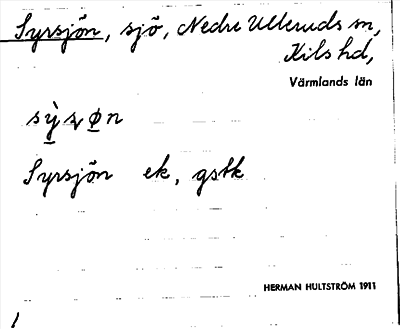 Syrsjön, sjö, Nedre Ulleruds sn,
Kils hd,
Värmlands län
Syrsjön ek, gstk
HERMAN HULTSTRÖM 1911